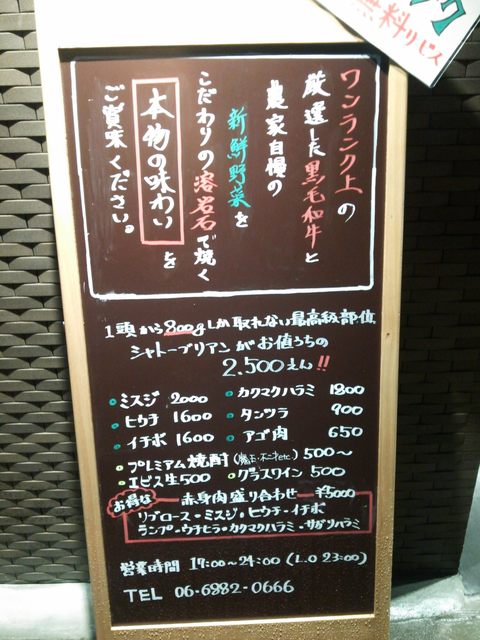 ク
無料サービス
ワンランク上の
厳選した黒毛和牛と
農家自慢の
新鮮野菜を
こだわりの溶岩石で焼く
本物の味わいを
ご賞味ください。
1頭から800gしか取れない最高級部位
シャトーブリアンがお値うちの
2,500えん!!
ミスジ 2000
カクマクハラミ 1800
ヒウチ 1600
タンツラ 900
イチボ 1600
アゴ肉 650
プレミアム焼酎(etc.) 500〜
エビス生500
グラスワイン 500
お得な
赤身肉盛り合わせ ¥5000
リブロース・ミスジ・ヒウチ・イチボ
ランプ・ウチヒラ・カクマクハラミ・サガリハラミ
営業時間 17:00〜24:00 (L.O 23:00)
TEL 06-6982-0666